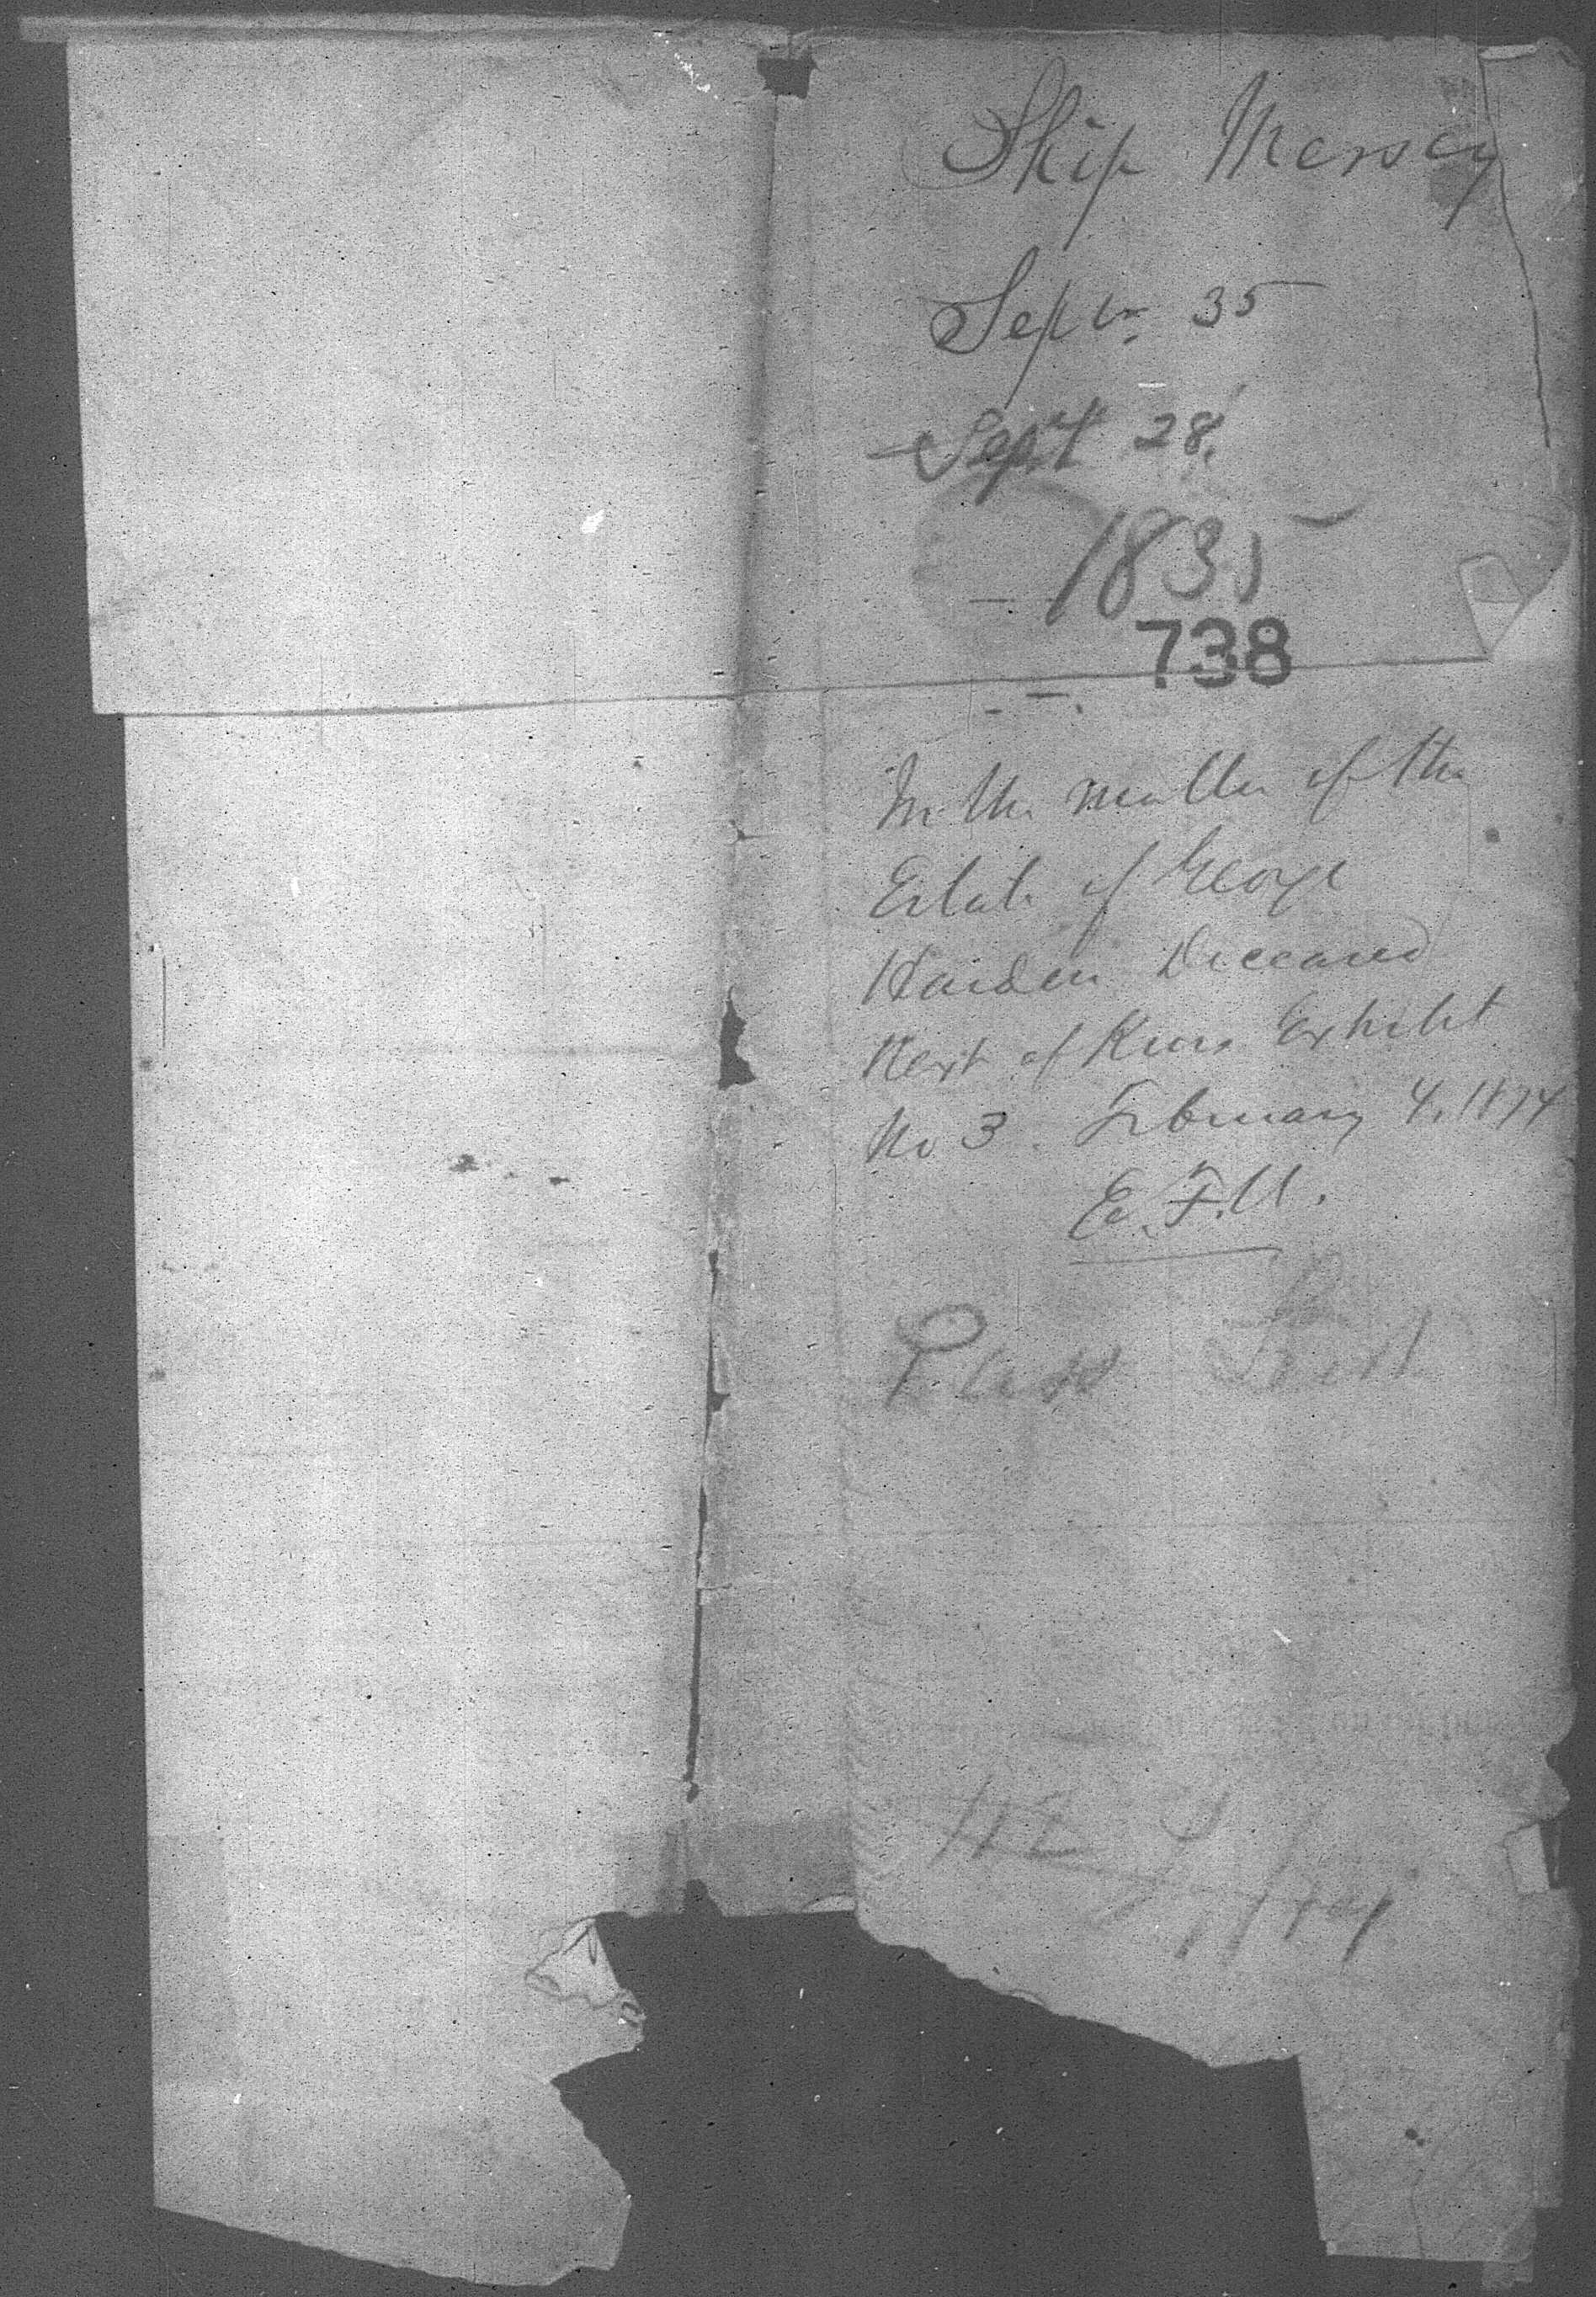 Ship Mersey
Septr. 35
Sept 28.
1835
738
In the matter of the
Estate of George
Harden Deceased
Next of Kins Exhibit
No 3. February 4. 1874
E. F. U.